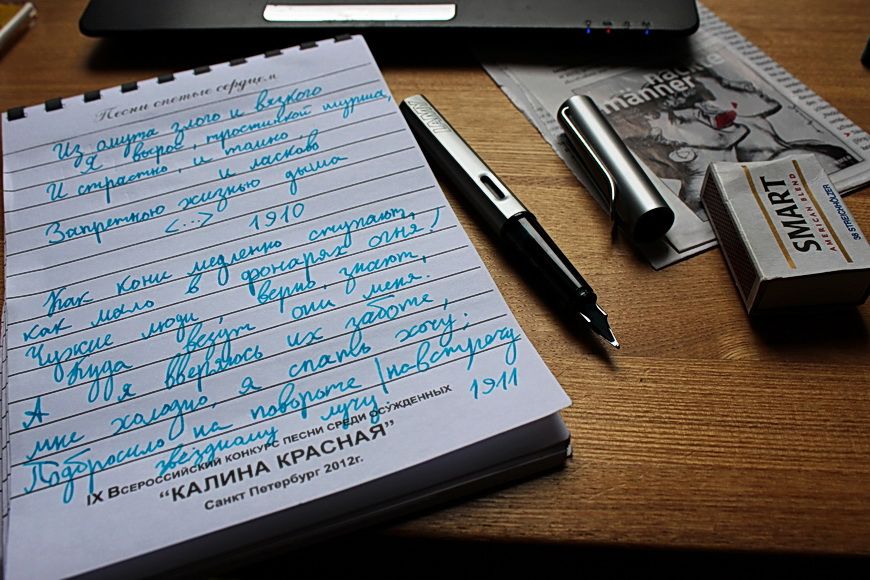 Песни спетые сердцем
Из омута злого и вязкого
Я вырос, тростинкой шурша,
И страстно, и томно, и ласково
Запретною жизнью дыша
<...> 1910
Как кони медленно ступают,
как мало в фонарях огня!
Чужие люди, верно, знают,
Куда везут они меня.
А я вверяюсь их заботе,
мне холодно, я спать хочу;
Подбросило на повороте / навстречу
звёздному лучу. 1911
IX Всероссийский конкурс песни среди осужденных
"КАЛИНА КРАСНАЯ"
Санкт Петербург 2012г.
LAMY
männer
SMART
AMERICAN BLEND